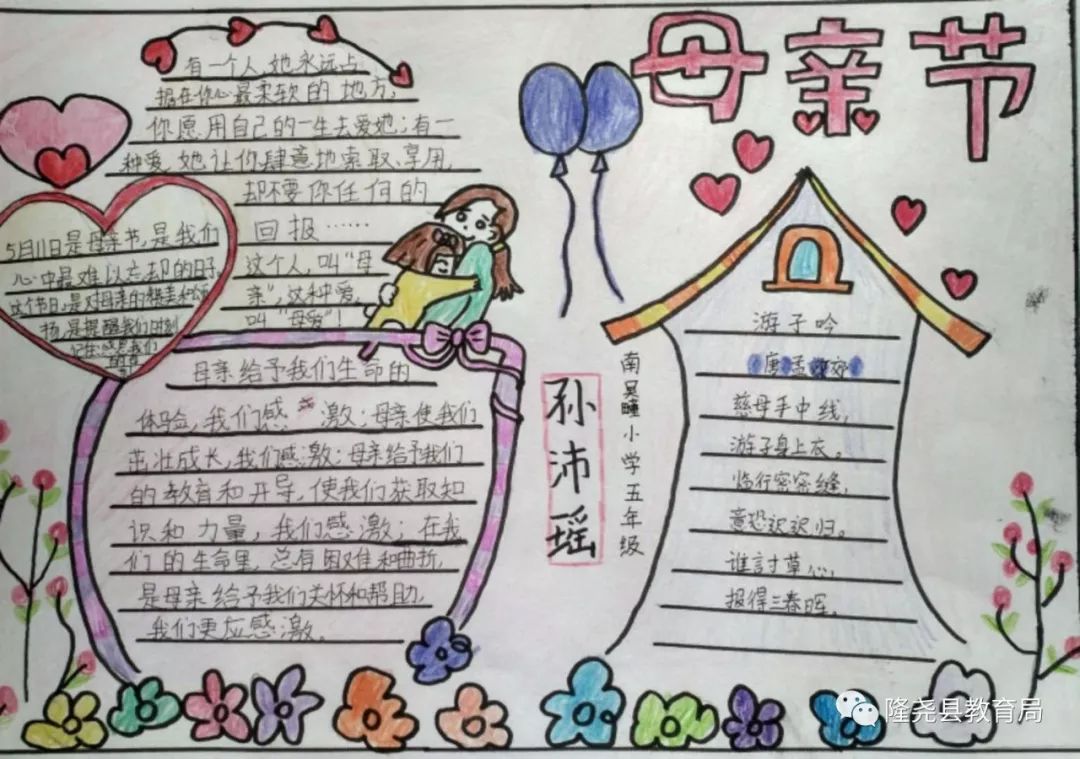 母亲节
有一个人,她永远占
据在你心最柔软的地方,
你愿用自己的一生去爱她;有一
种爲,她让你肆意地索取、享用,
却不要你任何的
回报……
这个人,叫“母
亲”,这种爱,
叫“母爱”!
5月11日是母亲节,是我们
心中最难以忘却的日子。
这个节日,是对母亲的和颂
扬,是提醒我们时刻
记住感恩我们
母亲给予我们生命的
体验,我们感激;母亲使我们
茁壮成长,我们感激;母亲给予我们
的教育和开导,使我们获取知
识和力量,我们感激;在我
们的生命里,总有困难和曲折,
是母亲给予我们关怀和帮助,
我们更应感激。
孙沛瑶
南吴疃小学五年级
游子吟
唐 孟郊
慈母手中线,
游子身上衣。
临行密密缝,
意恐迟迟归。
谁言寸草心,
报得三春晖。
隆尧县教育局